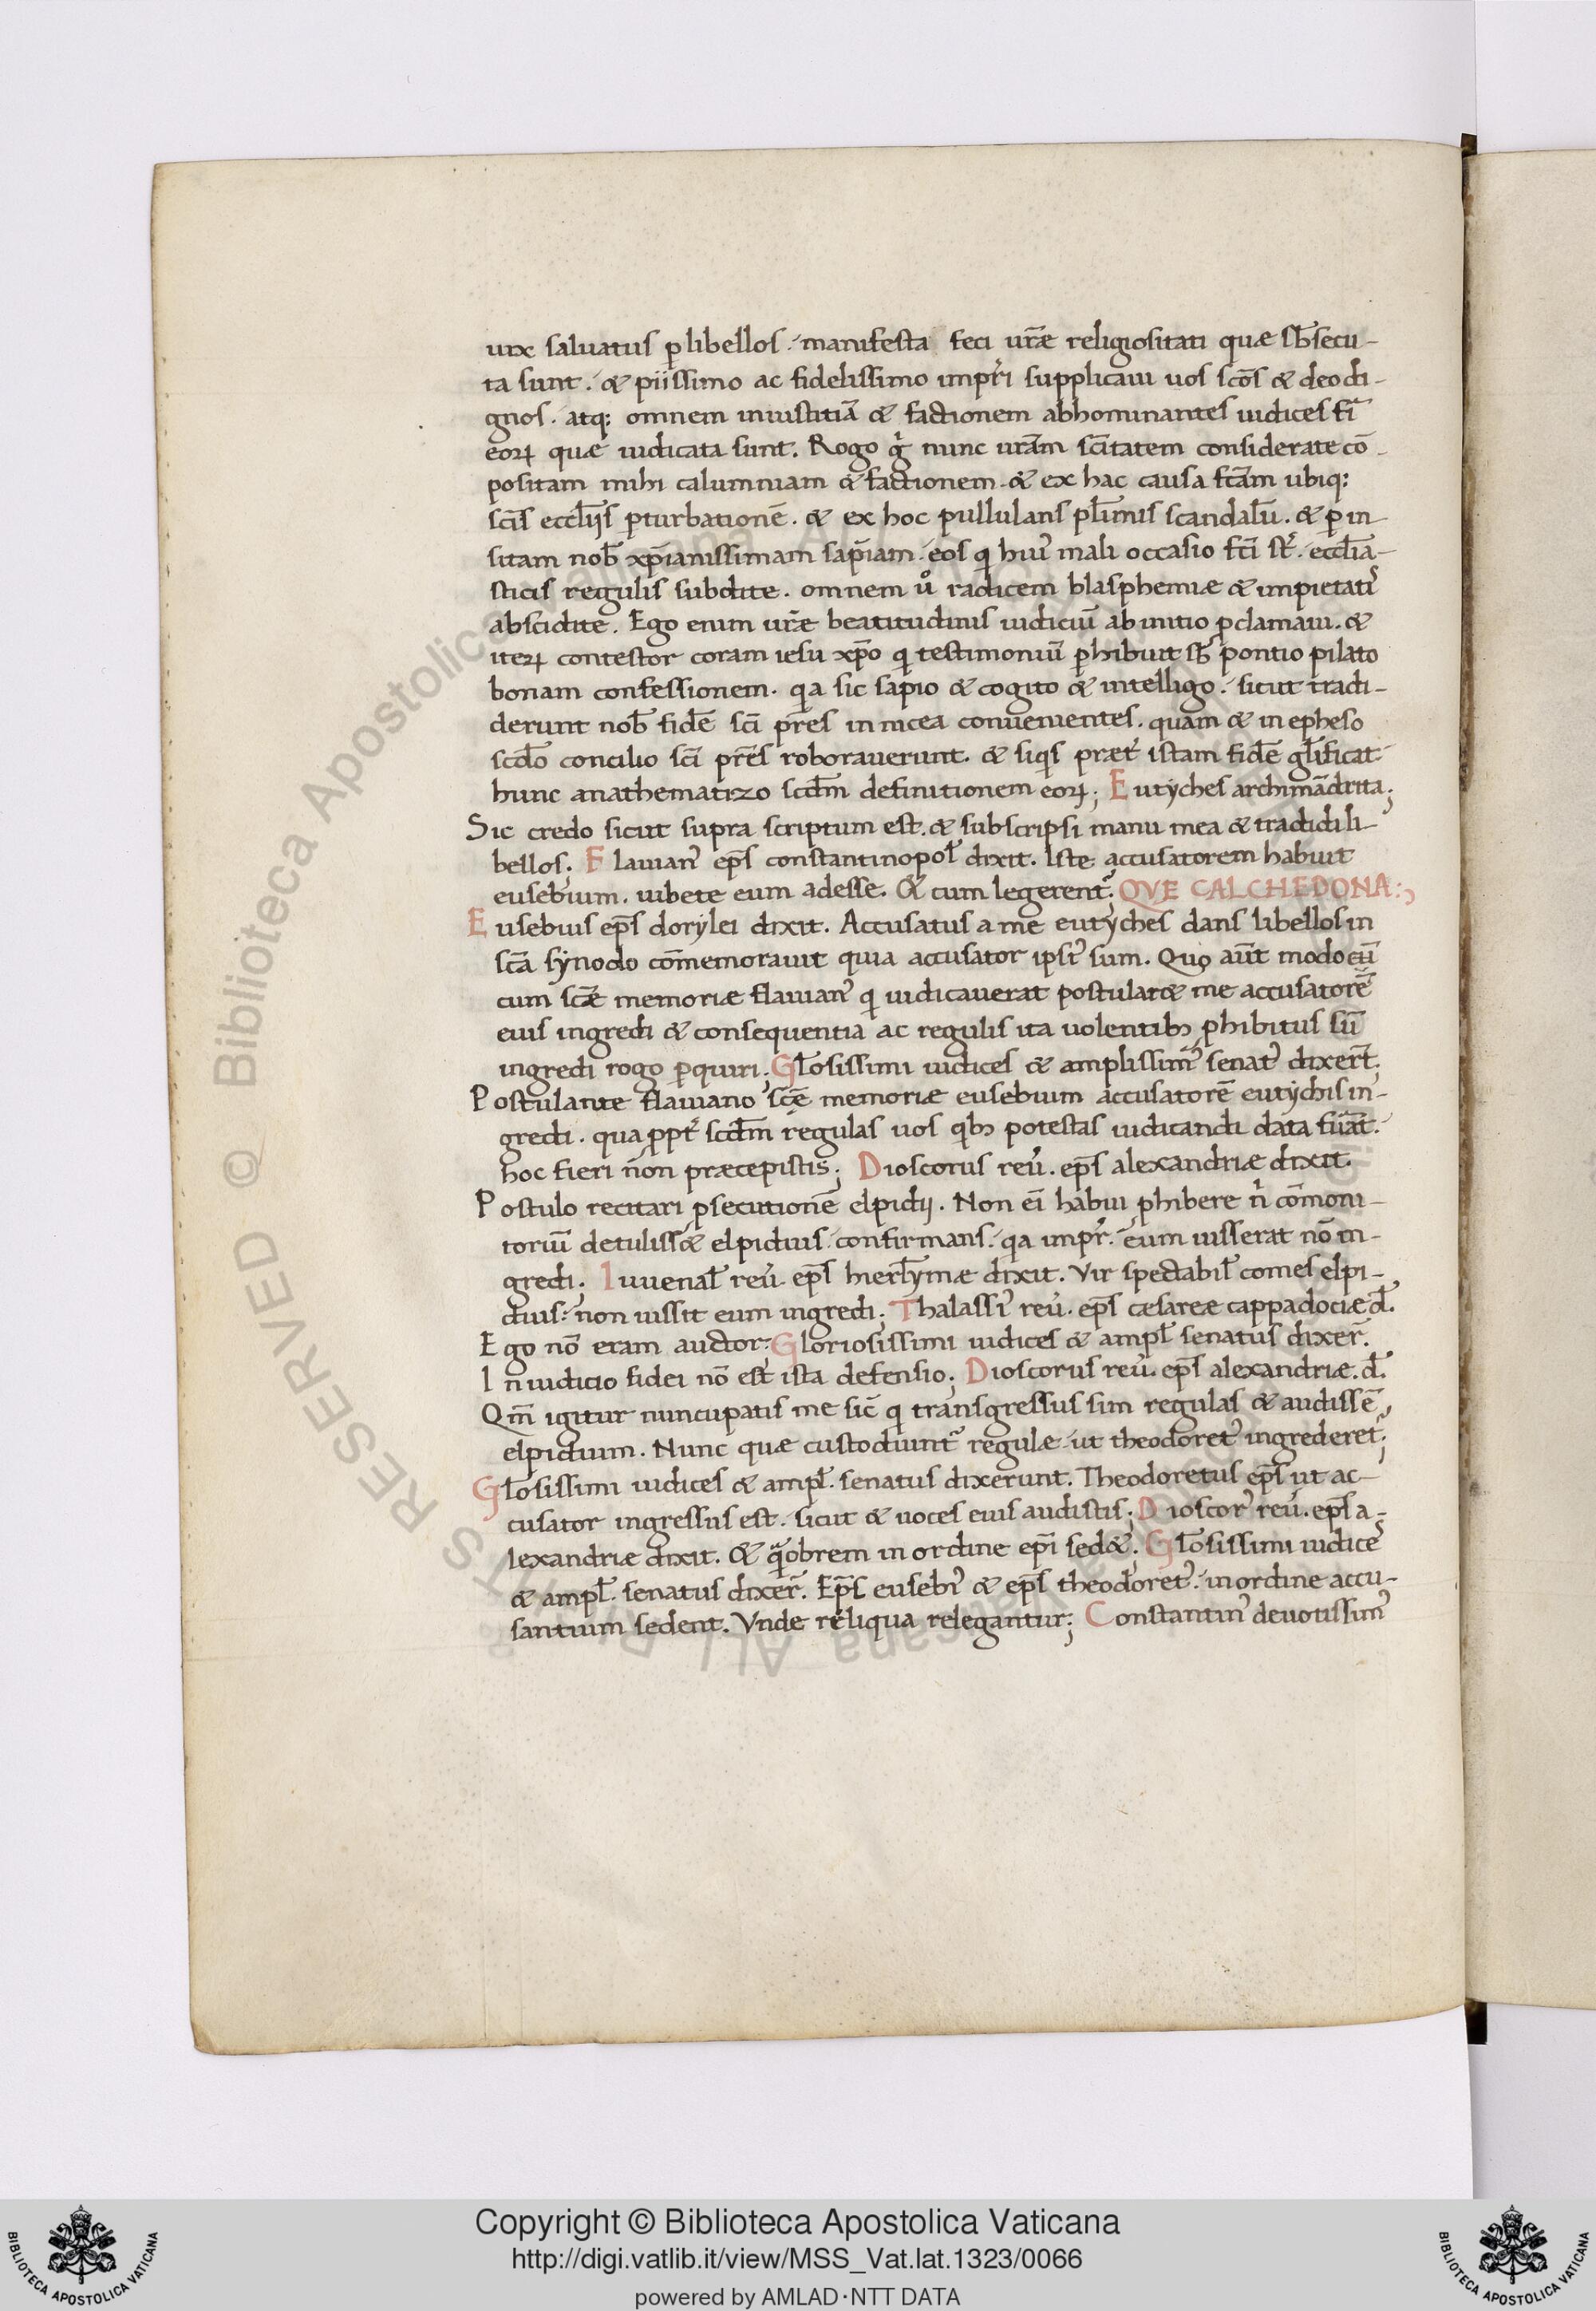 uix saluatus ꝑ libellos. manifesta feci ur̄æ religiositati quæ sb̄secu-
ta sunt. & piissimo ac fidelissimo imprī supplicaui uos scōs & deo di-
gnos. atq: omnem iniustitiā & factionem abhominantes iudices fri
eoꝝ quæ iudicata sunt. Rogo gͥ nunc urām scītatem considerate cō-
positam mihi calumniam & factionem. & ex hac causa fcām ubiq:
scīs ecclijs ꝑturbationē. & ex hoc pullulans plīmis scandalū. & ꝑ in-
sitam nob̄ xp̄ianissimam sapiam. eos q huiꝰ mali occasio fcī st̄. ecclīa-
sticis regulis subdite. omnem uͦ radicem blasphemiæ & impietatꝭ
abscidite. Ego enim urǣ beatitudinis iudiciū ab initio ꝓclamaui. &
iteꝝ contestor coram iesu xp̄o q testimoniū ꝑhibuit sb̄ pontio pilato
bonam confessionem. qa sic sapio & cogito & intelligo. sicut tradi-
derunt nob̄ fidē scī prēs in nicea conuenientes. quam & in epheso
scdō concilio scī prēs roborauerunt. & siqs præt̉ istam fidē gl̄ificat
hunc anathematizo scdm̄ definitionem eoꝝ; Eutyches archimādrita;
Sic credo sicut supra scriptum est. & subscripsi manu mea & tradidi li-
bellos; Flauianꝰ ep̄s constantinopol̄ dixit. Iste accusatorem habuit
eusebium. iubete eum adesse. & cum legerent᷑. QVE CALCHEDONA:,
Eusebius ep̄s dorylei dixit. Accusatus a me eutyches dans libellos in
scā synodo cōmemorauit quia accusator ipsiꝰ sum. Quo aūt modo cū
cum scǣ memoriæ flauianꝰ q iudicauerat postular& me accusatorē
eius ingredi & consequentia ac regulis ita uolentibꝫ ꝓhibitus sū
ingredi rogo ꝑquiri; Gl̄osissimi iudices & amplissimꝰ senatꝰ dixer̄t.
Postulante flauiano scē memoriæ eusebium accusatorē eutychis in-
gredi. qua ꝓpt̉ scdm̄ regulas uos qbꝫ potestas iudicandi data fuāt.
hoc fieri non præcepistis; Dioscorus reu̓. ep̄s alexandriæ dixit.
Postulo recitari ꝓsecutionē elpidij. Non eī habui ꝓhibere n̓ cōmoni-
toriū detuliss& elpidius confirmans. qa impr̄. eum iusserat nō in-
gredi; Iuuenal̄ reu̓. ep̄s hierl̄ymæ dixit. Vir spectabil̄ comes elpi-
dius: non iussit eum ingredi; Thalassiꝰ reu̓. ep̄s cæsareæ cappadociæ d̄.
Ego nō eram auctor: Gloriosissimi iudices & ampl̄ senatus dixer̄.
In iudicio fidei nō est ista defensio; Dioscorus reu̓. ep̄s alexandriæ. d̄.
Qm̄ igitur nuncupatis me sic̄ q transgressus sim regulas & audissē
elpidium. Nunc quæ custodiunt᷑ regulæ ut theodoretꝰ ingrederet᷑;
Gl̄osissimi iudices & ampl̄. senatus dixerunt. Theodoretus ep̄s ut ac-
cusator ingressus est. sicut & uoces eius audistis; Dioscorꝰ reu̓. ep̄s a-
lexandriæ dixit. & qāobrem in ordine ep̄i sed&. Gl̄osissimi iudicꝭ
& ampl̄. senatus dixer̄. Ep̄s eusebiꝰ & ep̄s theodoretꝰ. in ordine accu-
santium sedent. Vnde reliqua relegantur; Constantinꝰ deuotissimꝰ
Copyright © Biblioteca Apostolica Vaticana
http://digi.vatlib.it/view/MSS_Vat.lat.1323/0066
powered by AMLAD·NTT DATA